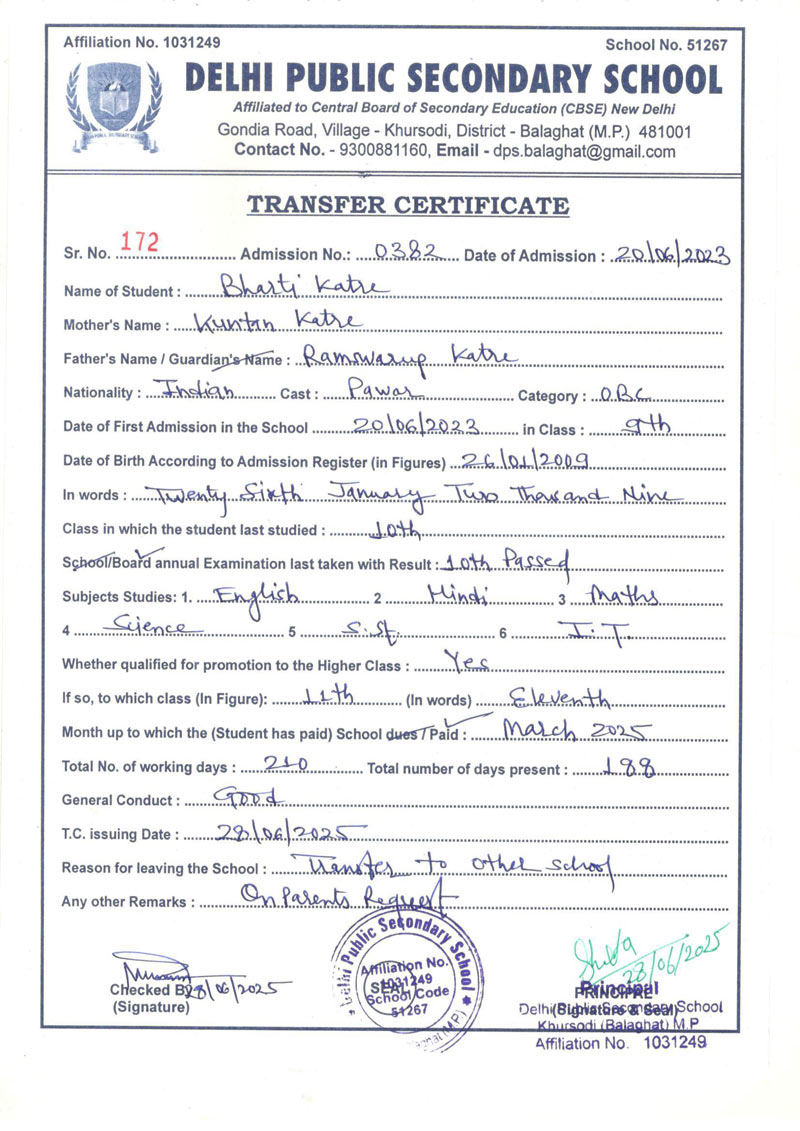 Affiliation No. 1031249 School No. 51267
DELHI PUBLIC SECONDARY SCHOOL
Affiliated to Central Board of Secondary Education (CBSE) New Delhi
Gondia Road, Village - Khursodi, District - Balaghat (M.P.) 481001
Contact No. - 9300881160, Email - dps.balaghat@gmail.com
TRANSFER CERTIFICATE
Sr. No. 172 Admission No.: 0382 Date of Admission : 20/06/2023
Name of Student : Bharti Katre
Mother's Name : Kuntan Katre
Father's Name / Guardian's Name : Ramswarup Katre
Nationality : Indian Cast : Pawar Category : OBC
Date of First Admission in the School 20/06/2023 in Class : 9th
Date of Birth According to Admission Register (in Figures) 26/01/2009
In words : Twenty Sixth January Two Thousand Nine
Class in which the student last studied : 10th
School/Board annual Examination last taken with Result : 10th Passed
Subjects Studies: 1. English 2 Hindi 3 Maths
4 Science 5 S.St. 6 I.T.
Whether qualified for promotion to the Higher Class : Yes
If so, to which class (In Figure): 11th (In words) Eleventh
Month up to which the (Student has paid) School dues / Paid : March 2025
Total No. of working days : 210 Total number of days present : 188
General Conduct : Good
T.C. issuing Date : 28/06/2025
Reason for leaving the School : Transfer to other school
Any other Remarks : On Parents Request
Delhi Public Secondary School
Affiliation No.
1031249
SEAL
School Code
51267
(M.P.)
28/06/2025
Checked By 28/06/2025
(Signature)
Principal
PRINCIPAL
(Signature & Seal)
Delhi Public Secondary School
Khursodi (Balaghat) M.P
Affiliation No. 1031249